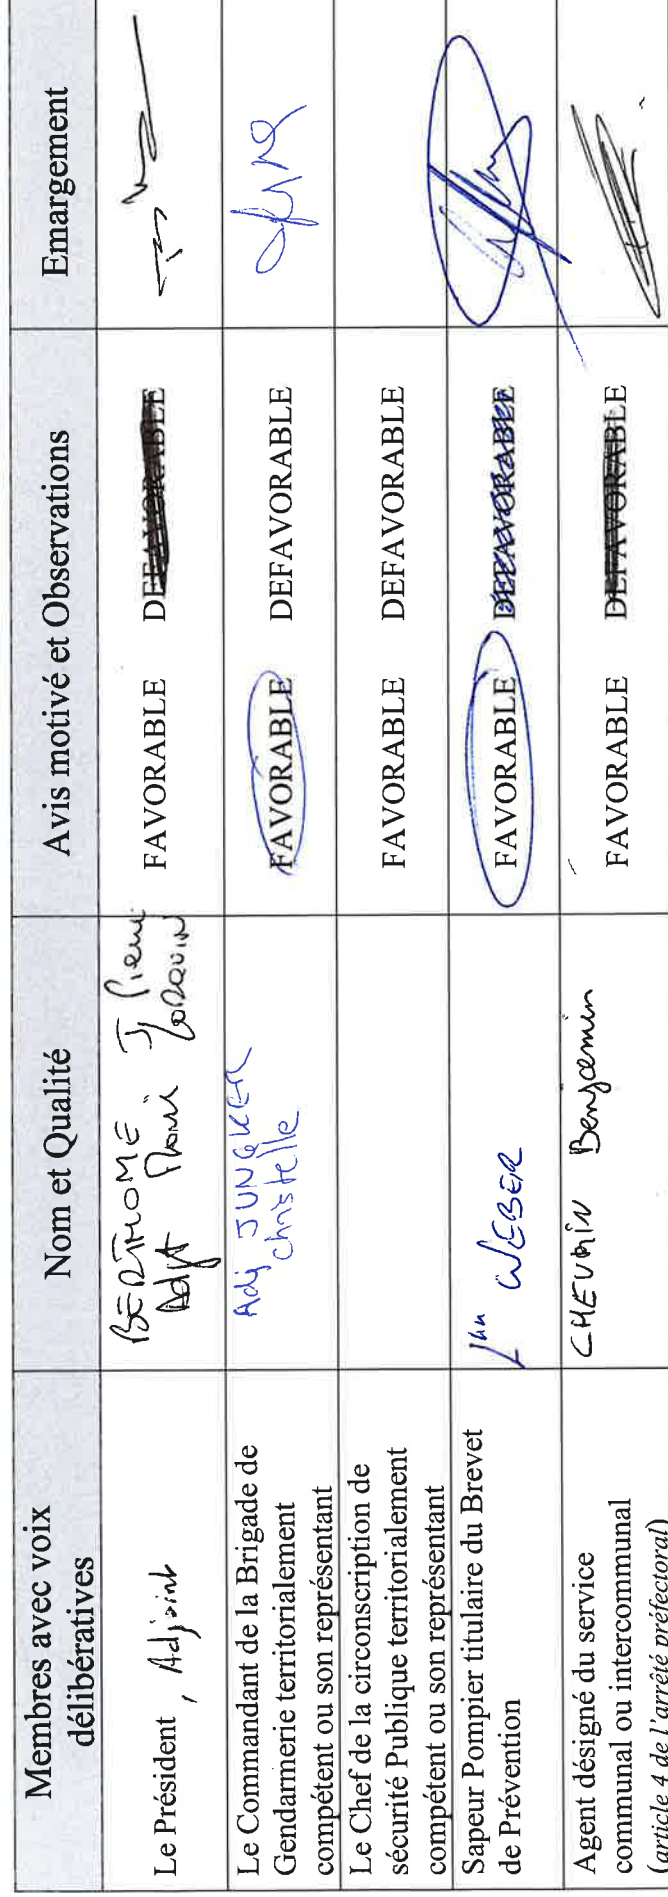 Membres avec voix délibératives
Nom et Qualité
Avis motivé et Observations
Emargement
Le Président, Adjoint
BERTHOME
Adjt
FAVORABLE DEFAVORABLE
Le Commandant de la Brigade de
Gendarmerie territorialement
compétent ou son représentant
Adj JUNGKER
Christelle
FAVORABLE DEFAVORABLE
Le Chef de la circonscription de
sécurité Publique territorialement
compétent ou son représentant
FAVORABLE DEFAVORABLE
Sapeur Pompier titulaire du Brevet
de Prévention
WEBER
FAVORABLE DEFAVORABLE
Agent désigné du service
communal ou intercommunal
(article 4 de l'arrêté préfectoral)
Benjamin
FAVORABLE DEFAVORABLE